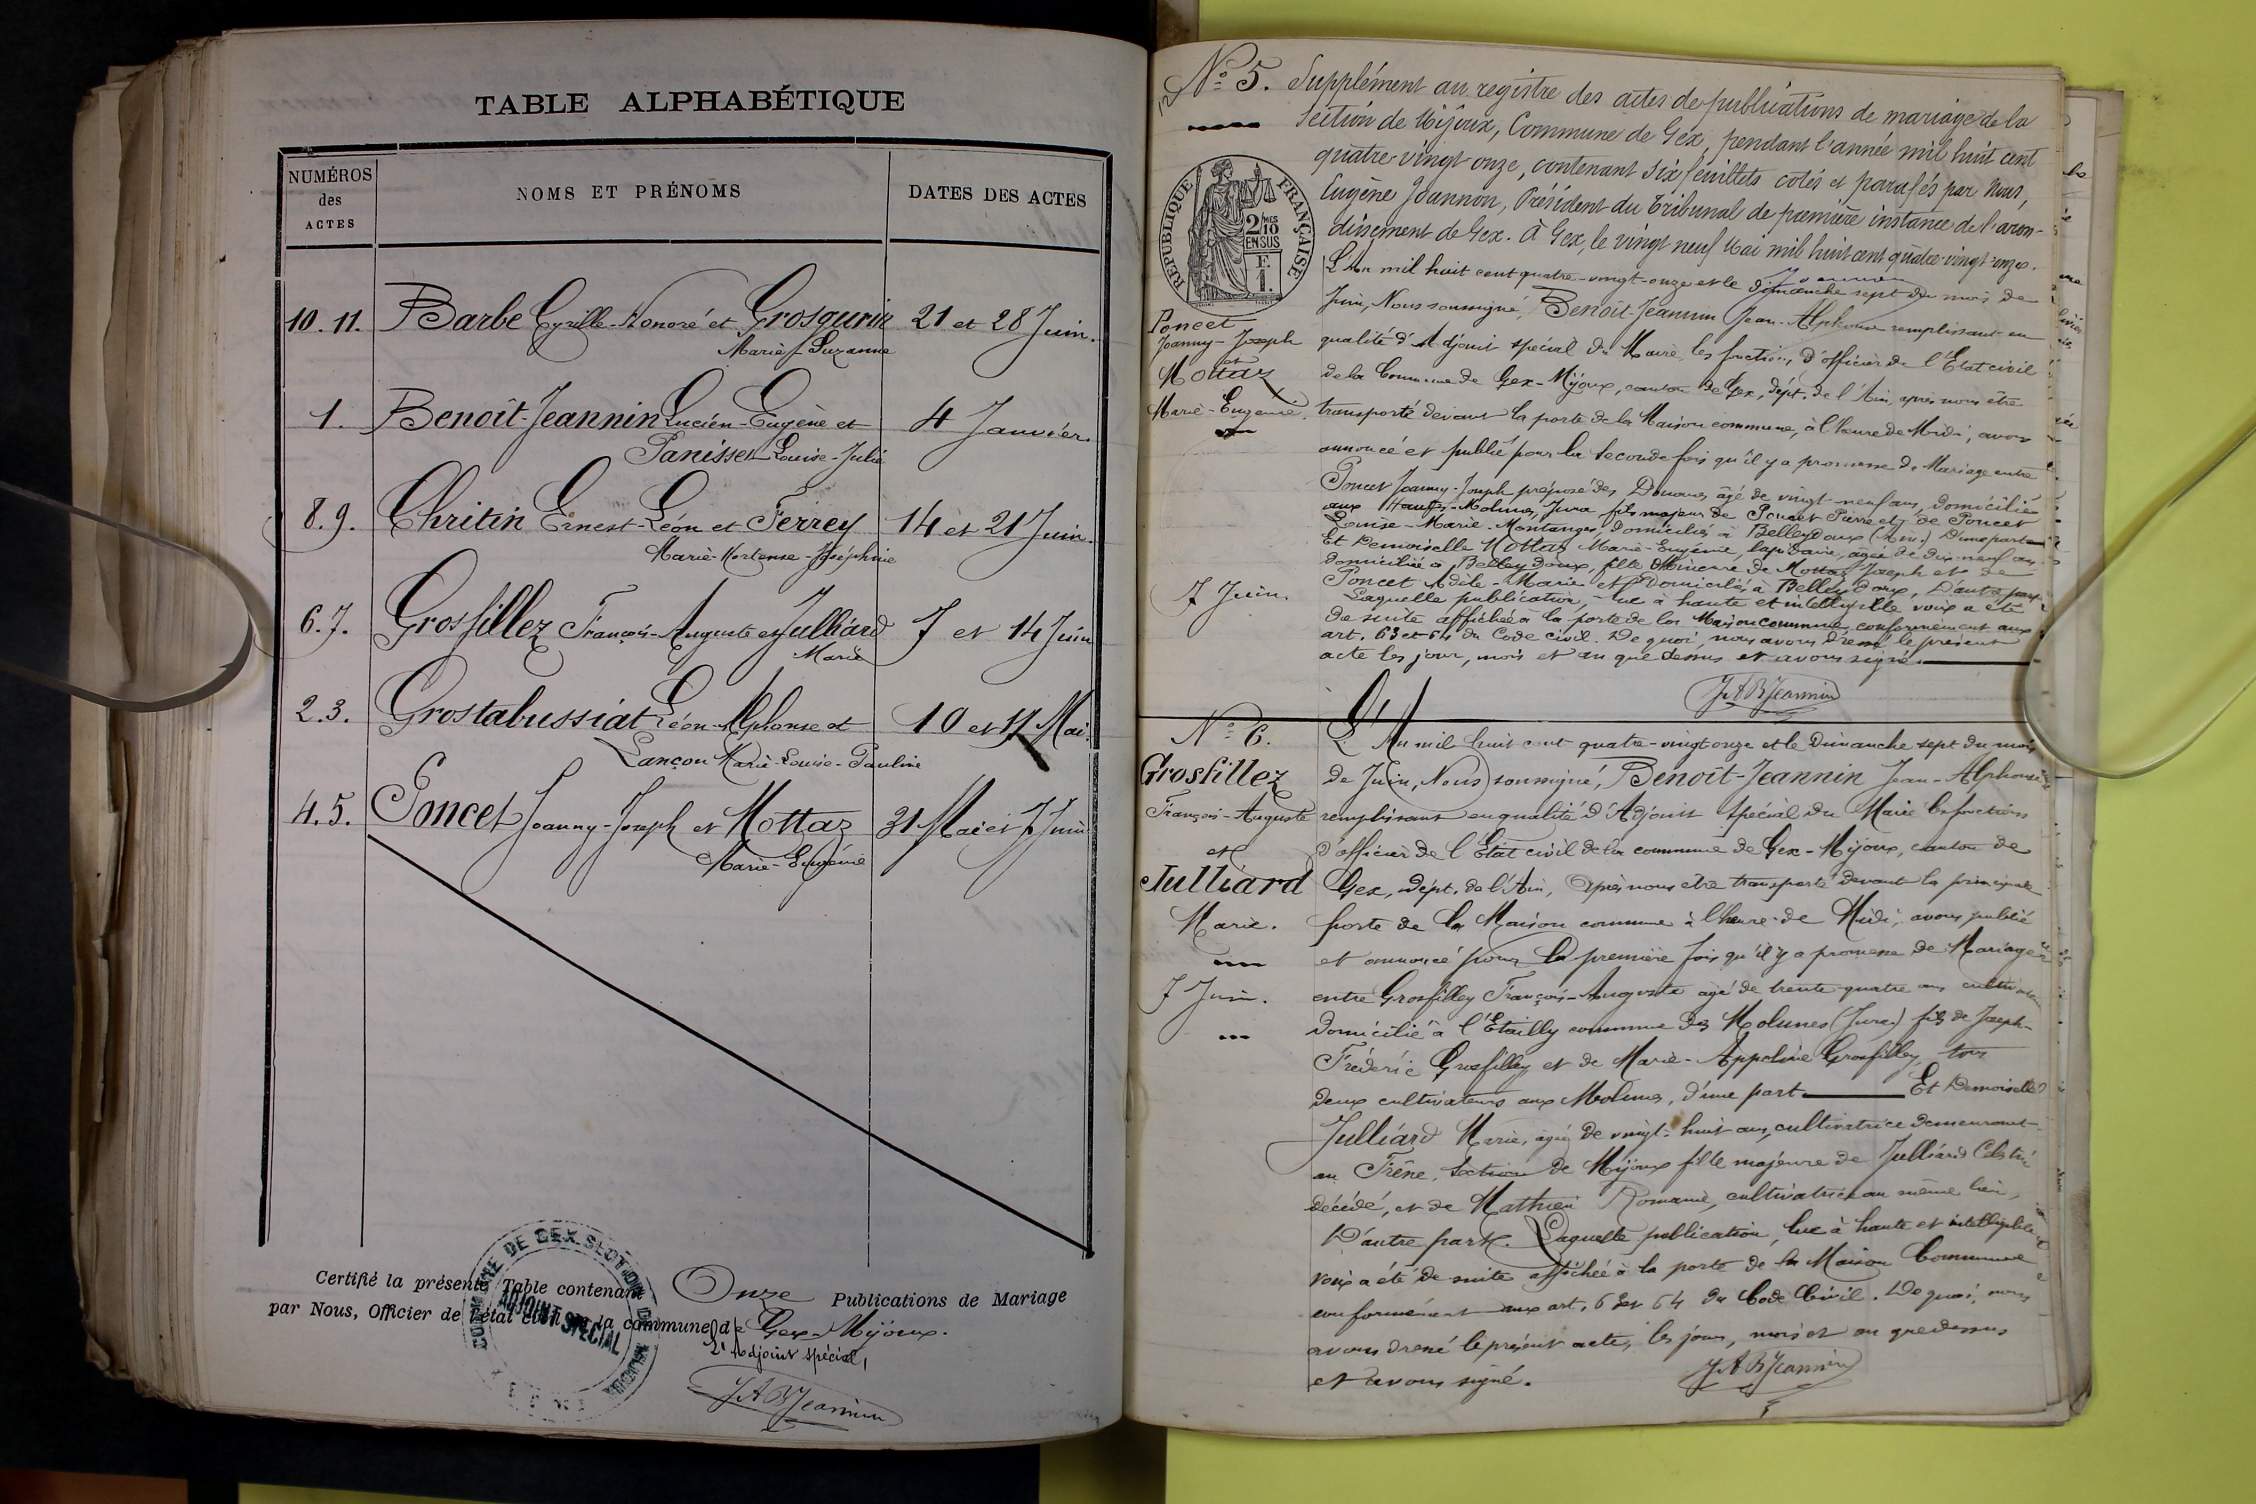 TABLE ALPHABÉTIQUE
NUMÉROS
des
ACTES
NOMS ET PRÉNOMS
DATES DES ACTES
10. 11. Barbe Cyrille-Honoré et Grosgurin 21 et 28 Juin.
Marie-Suzanne
1. Benoît-Jeannin Lucien-Eugène et 4 Janvier.
Panisset Louise-Julie
8. 9. Chritin Ernest-Léon et Ferrey 14 et 21 Juin.
Marie-Hortense-Joséphine
6. 7. Grosfillez François-Auguste et Julliard 7 et 14 Juin
Marie
2. 3. Grostabussiat Léon-Alphonse et 10 et 17 Mai.
Lançon Marie-Louise-Pauline
4. 5. Poncet Joanny-Joseph et Mottaz 31 Mai et 7 Juin
Marie-Eugénie
Certifié la présente Table contenant Onze Publications de Mariage
par Nous, Officier de l'état civil de la commune de Gex-Mijoux.
L'Adjoint spécial,
JABJeannin
COMMUNE DE GEX SECTION DE MIJOUX
ADJOINT SPÉCIAL
N° 5. Supplément au registre des actes de publications de mariage de la
Section de Mijoux, Commune de Gex, pendant l'année mil huit cent
quatre vingt onze, contenant six feuillets cotés et parafés par Nous,
Eugène Joannon, Président du Tribunal de première instance de l'arron-
dissement de Gex. À Gex, le vingt neuf Mai mil huit cent quatre-vingt-onze.
Joannon
RÉPUBLIQUE FRANÇAISE
2/10 EN SUS
F. 1.
Poncet
Joanny-Joseph
et
Mottaz
Marie-Eugénie.
7 Juin.
L'An mil huit cent quatre-vingt-onze et le dimanche sept du mois de
Juin, Nous soussigné, Benoît-Jeannin Jean-Alphonse remplissant en
qualité d'Adjoint spécial du Maire les fonctions d'officier de l'État civil
de la Commune de Gex-Mijoux, canton de Gex, dépt. de l'Ain, après nous être
transporté devant la porte de la Maison commune, à l'heure de Midi, avons
annoncé et publié pour la seconde fois qu'il y a promesse de Mariage entre
Poncet Joanny-Joseph préposé des Douanes âgé de vingt-neuf ans, domicilié
aux Hautes-Molunes, Jura fils majeur de Poncet Pierre et de Poncet
Louise-Marie-Montanges, domiciliés à Belleydoux (Ain.) D'une part
Et Demoiselle Mottaz Marie-Eugénie, lapidaire, âgée de dix-neuf ans
domiciliée à Belleydoux, fille Mineure de Mottaz Joseph et de
Poncet Adèle-Marie et domiciliés à Belleydoux, D'autre part
Laquelle publication, lue à haute et intelligible voix a été
de suite affichée à la porte de la Maison commune, conformément aux
art. 63 et 64 du Code civil. De quoi nous avons dressé le présent
acte les jour, mois et an que dessus et avons signé.
JABJeannin
N° 6.
Grosfillez
François-Auguste
et
Julliard
Marie.
7 Juin.
L'An mil huit cent quatre-vingt onze et le Dimanche sept du mois
de Juin, Nous soussigné, Benoît-Jeannin Jean-Alphonse
remplissant en qualité d'Adjoint spécial du Maire les fonctions
d'officier de l'État civil de la commune de Gex-Mijoux, canton de
Gex, dépt. de l'Ain, après nous être transporté devant la principale
porte de la Maison commune à l'heure de Midi, avons publié
et annoncé pour la première fois qu'il y a promesse de Mariage
entre Grosfilley François-Auguste âgé de trente-quatre ans cultivateur
domicilié à l'Étailly commune des Molunes (Jura) fils de Joseph-
Frédéric Grosfilley et de Marie-Appoline Grosfilley, tous
deux cultivateurs aux Molunes, d'une part Et Demoiselle
Julliard Marie, âgée de vingt-huit ans, cultivatrice demeurant
au Frêne, Section de Mijoux fille majeure de Julliard Célestin
décédé, et de Mathieu Romanie, cultivatrice au même lieu,
D'autre part. Laquelle publication, lue à haute et intelligible
voix a été de suite affichée à la porte de la Maison Commune
conformément aux art. 63 et 64 du Code Civil. De quoi, nous
avons dressé le présent acte, les jour, mois et an que dessus
et avons signé.
JABJeannin